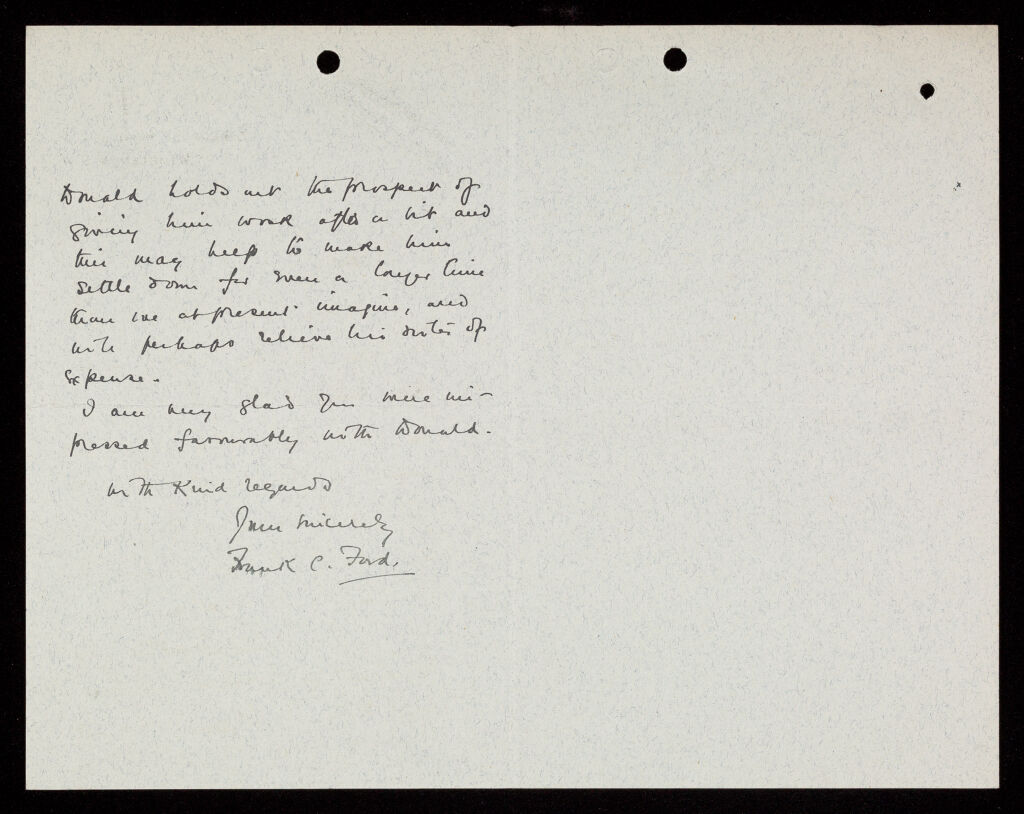 Donald holds out the prospect of
giving him work after a bit and
this may help to make him
settle down for even a longer time
than we at present imagine, and
will perhaps relieve his sister of
expense.
I am very glad you were im-
pressed favourably with Donald.
with Kind regards
Yours sincerely
Frank C. Ford.